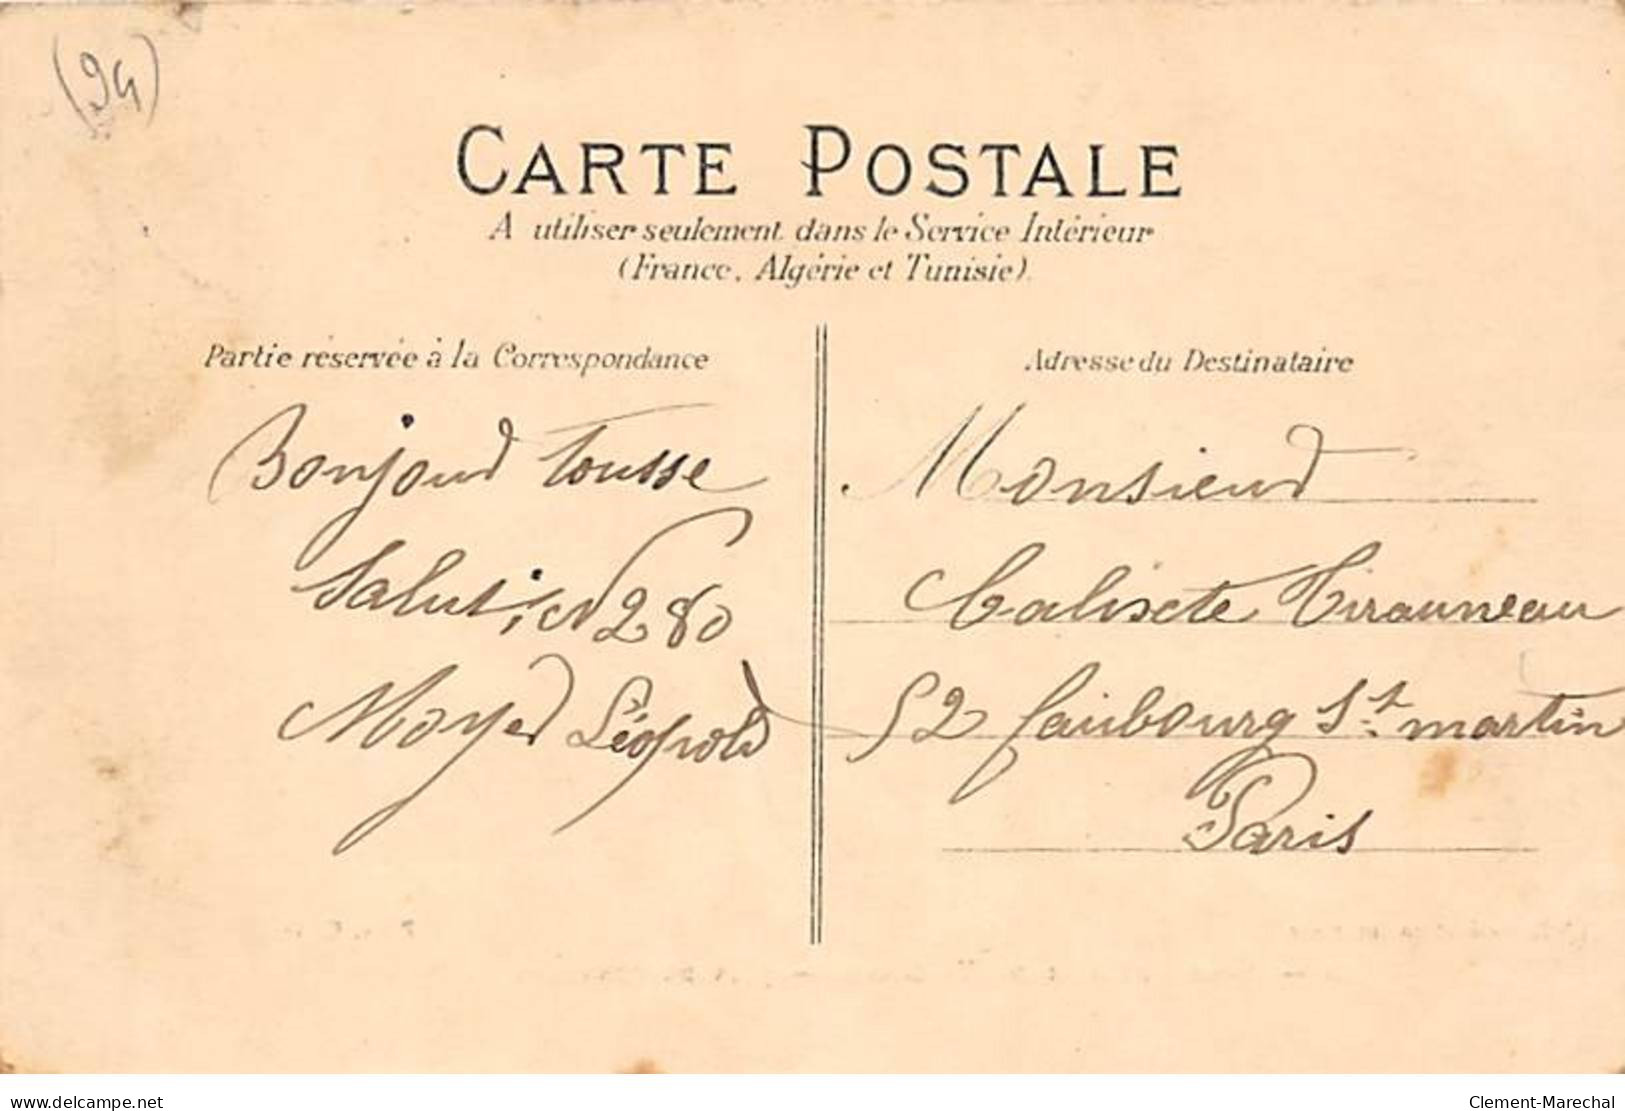 (94)
CARTE POSTALE
A utiliser seulement dans le Service Intérieur
(France, Algérie et Tunisie).
Partie réservée à la Correspondance
Bonjour tousse
Salut, N 280
Moyer Léopold
Adresse du Destinataire
Monsieur
Calixte Tirauneau
52 faubourg St martin
Paris
www.delcampe.net
Clement-Marechal